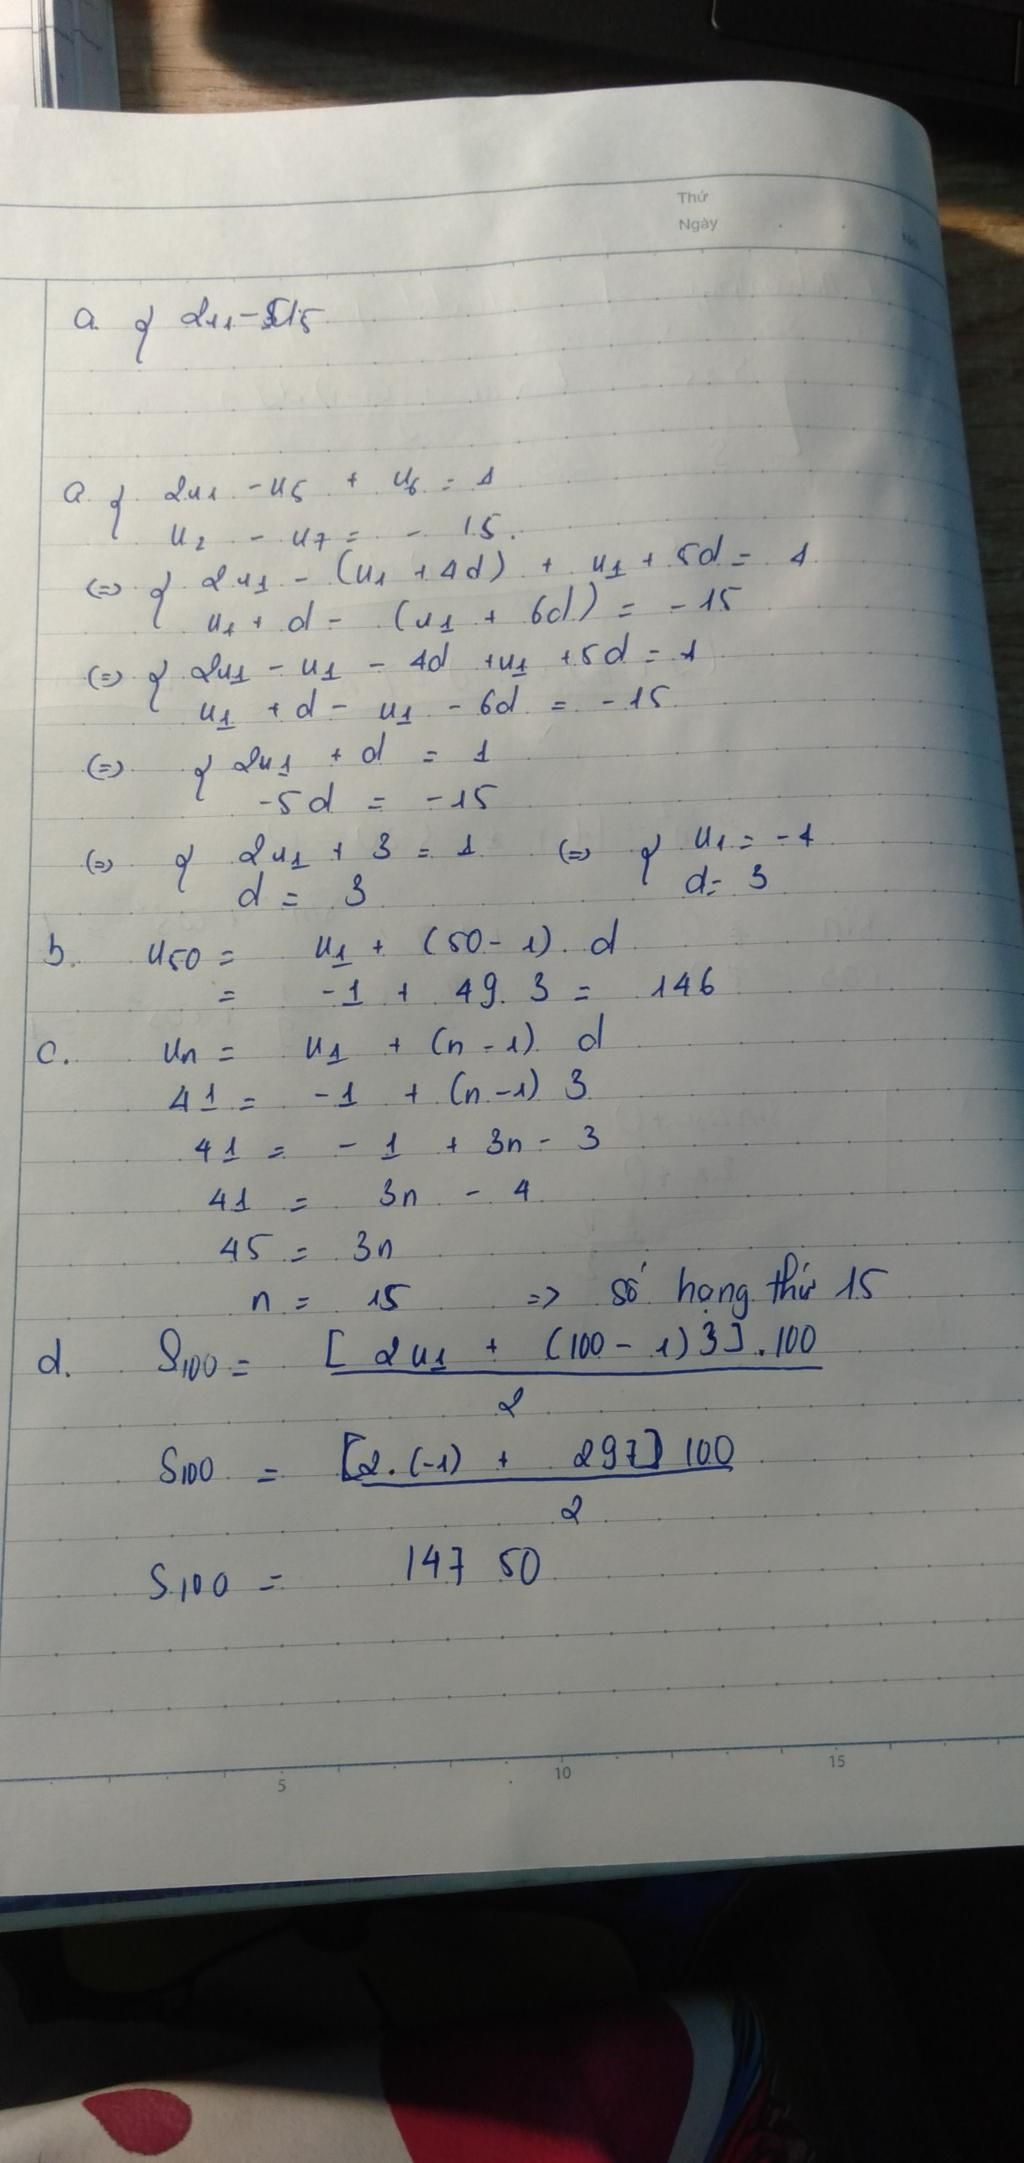 Thứ
Ngày
a. {
a. { 2u1 - u5 + u6 = 1
u2 - u7 = - 15.
(=) { 2u1 - (u1 + 4d) + u1 + 5d = 1
u1 + d - (u1 + 6d) = -15
(=) { 2u1 - u1 - 4d + u1 + 5d = 1
u1 + d - u1 - 6d = -15
(=) { 2u1 + d = 1
-5d = -15
(=) { 2u1 + 3 = 1 (=) { u1 = -1
d = 3 d = 3
b. u50 = u1 + (50 - 1). d
= -1 + 49. 3 = 146
c. un = u1 + (n - 1) d
41 = -1 + (n - 1) 3
41 = - 1 + 3n - 3
41 = 3n - 4
45 = 3n
n = 15 => số hạng thứ 15
d. S100 = [ 2u1 + (100 - 1) 3 ] . 100
2
S100 = [2. (-1) + 297] 100
2
S100 = 147 50
5 10 15